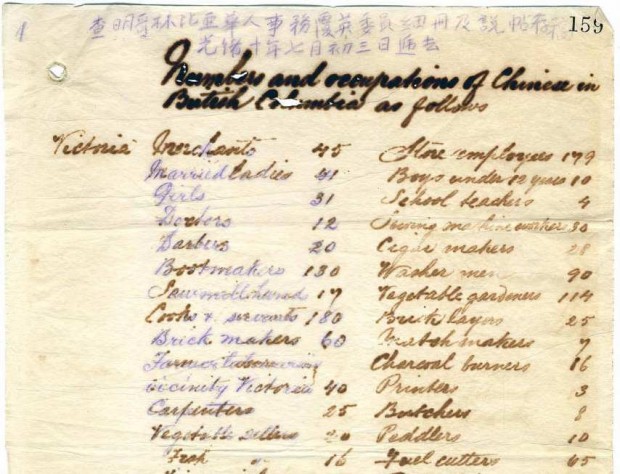 1
159
查明哥林比亚華人事務覆英委員細冊及說帖
光緒十年七月初三日逓去
Numbers and occupations of Chinese in
British Columbia as follows
Victoria Merchants 45 Store employees 179
Married ladies 41 Boys under 12 years 10
Girls 31 School teachers 4
Doctors 12 Sewing machine workers 30
Barbers 20 Cigar makers 28
Bootmakers 130 Washer men 90
Sawmill hand 17 Vegetable gardeners 114
Cooks & servants 180 Brick layers 25
Brick makers 60 Match makers 7
Charcoal burners 16
vicinity Victoria 40 Printers 3
Carpenters 25 Butchers 8
Vegetable sellers 20 Peddlers 10
Fish " 16 Fuel cutters 45